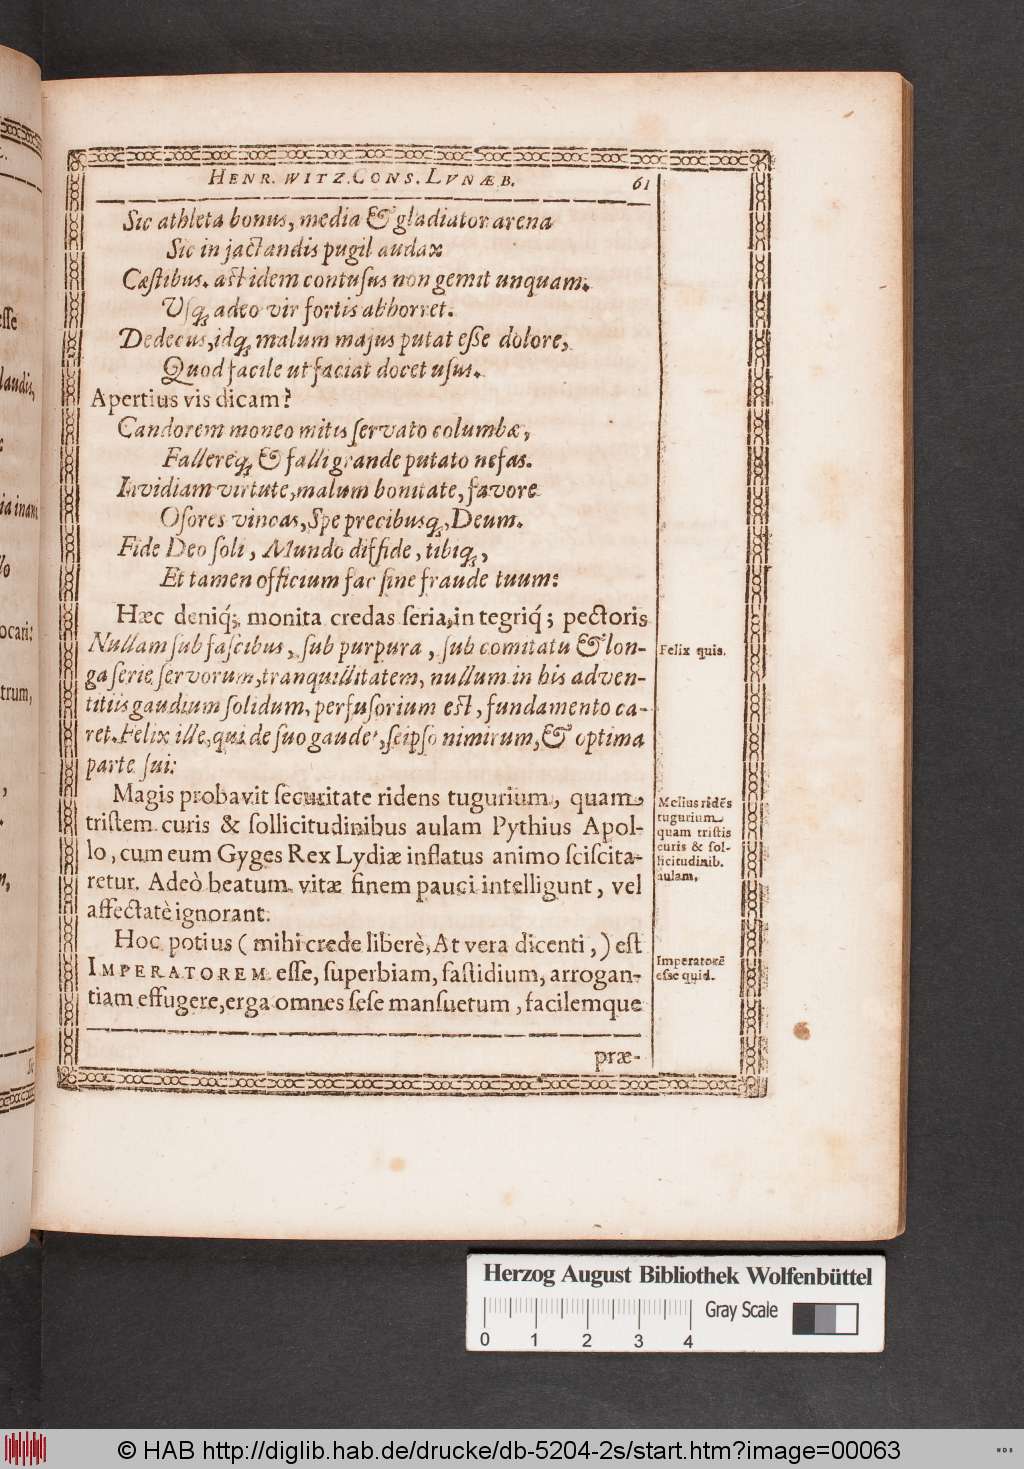 HENR. WITZ. CONS. LVNÆB. 61
Sic athleta bonus, media & gladiator arena
Sic in jactandis pugil audax
Cæstibus. ast idem contusus non gemit unquam.
Usq; adeo vir fortis abhorret.
Dedecus, idq; malum majus putat esse dolore,
Quod facile ut faciat docet usus.
Apertius vis dicam?
Candorem moneo mitis servato columbæ,
Fallereq; & falli grande putato nefas.
Invidiam virtute, malum bonitate, favore
Osores vincas, Spe precibusq;, Deum.
Fide Deo soli, Mundo diffide, tibiq;,
Et tamen officium fac sine fraude tuum:
Hæc deniq́; monita credas seria, in tegriq́; pectoris
Nullam sub fascibus, sub purpura, sub comitatu & lon-
ga serie servorum, tranquillitatem, nullum in his adven-
titiis gaudium solidum, perfusorium est, fundamento ca-
ret. Felix ille, qui de suo gaudet, seipso nimirum, & optima
parte sui:
Felix quis.
Magis probavit securitate ridens tugurium, quam
tristem curis & sollicitudinibus aulam Pythius Apol-
lo, cum eum Gyges Rex Lydiæ inflatus animo sciscita-
retur. Adeò beatum vitæ finem pauci intelligunt, vel
affectatè ignorant.
Melius ridẽs
tugurium
quam tristis
curis & sol-
licitudinib.
aulam,
Hoc potius ( mihi crede liberè, At vera dicenti, ) est
IMPERATOREM esse, superbiam, fastidium, arrogan-
tiam effugere, erga omnes sese mansuetum, facilemque
Imperatorẽ
esse quid.
præ-
esse
laudis,
ia inani
ocari:
trum,
Herzog August Bibliothek Wolfenbüttel
0 1 2 3 4
Gray Scale
© HAB http://diglib.hab.de/drucke/db-5204-2s/start.htm?image=00063